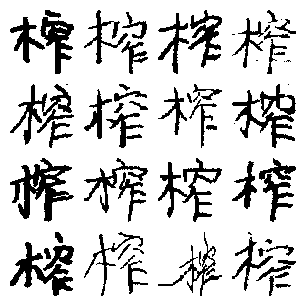 榨榨榨榨
榨榨榨榨
榨榨榨榨
榨榨榨榨